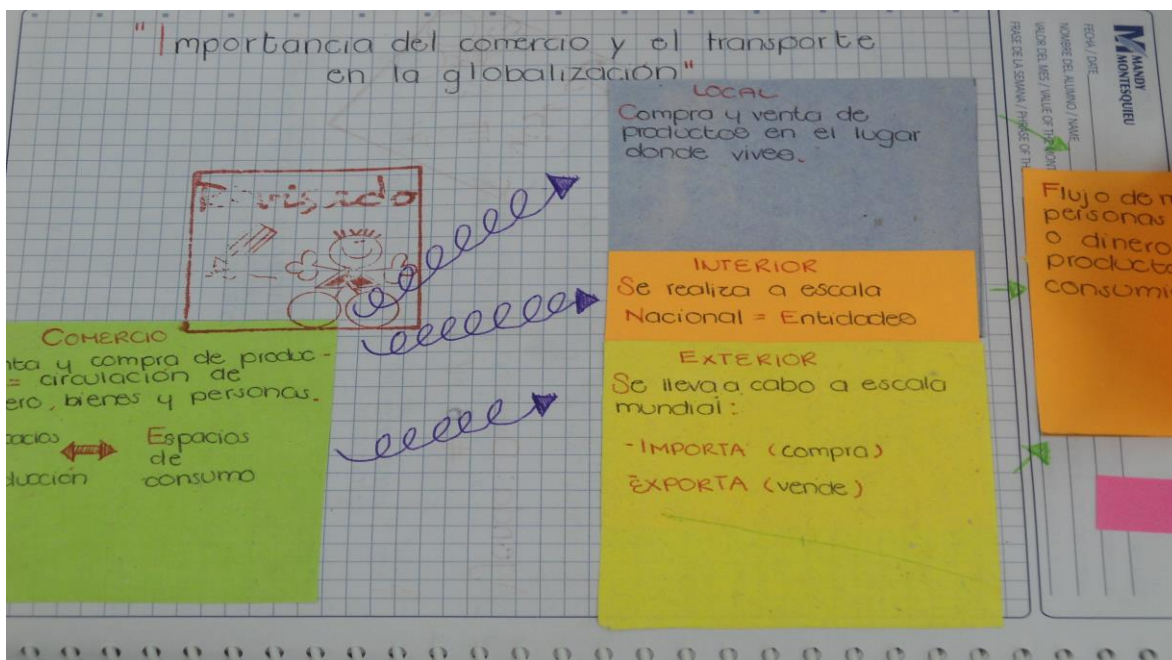 "Importancia del comercio y el transporte
en la globalización"
Revisado
COMERCIO
nta y compra de produc-
= circulación de
ero, bienes y personas.
acios Espacios
de
ducción consumo
LOCAL
Compra y venta de
productos en el lugar
donde vives.
INTERIOR
Se realiza a escala
Nacional = Entidades
EXTERIOR
Se lleva a cabo a escala
mundial:
-IMPORTA (compra)
-EXPORTA (vende)
Flujo de m
personas
o dinero
producto
consumi
MANDY
MONTESQUIEU
FECHA / DATE
NOMBRE DEL ALUMNO / NAME
VALOR DEL MES / VALUE OF THE MONT
FRASE DE LA SEMANA / PHRASE OF TH